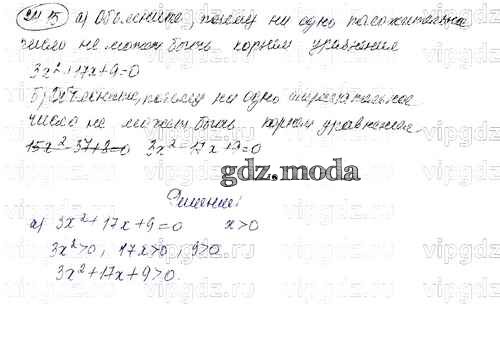 24.15 а) Объясните, почему ни одно положительное
число не может быть корнем уравнения
3x²+17x+9=0
б) Объясните, почему ни одно отрицательное
число не может быть корнем уравнения.
15x²-37+8=0 3x²-17x+9=0
gdz.moda
Решение
а) 3x²+17x+9=0 x>0
3x²>0, 17x>0, 9>0
3x²+17x+9>0.